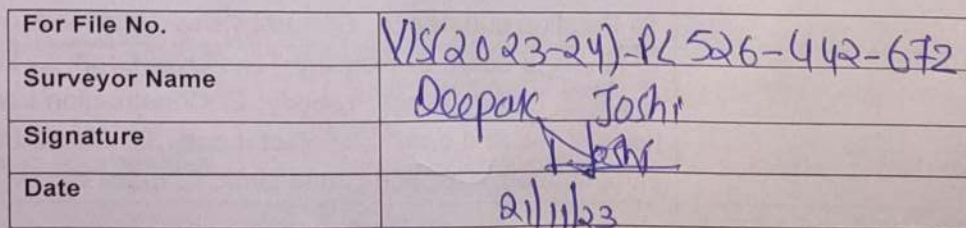 For File No. VIS(2023-24)-PL526-442-672
Surveyor Name Deepak Joshi
Signature DJoshi
Date 21/11/23